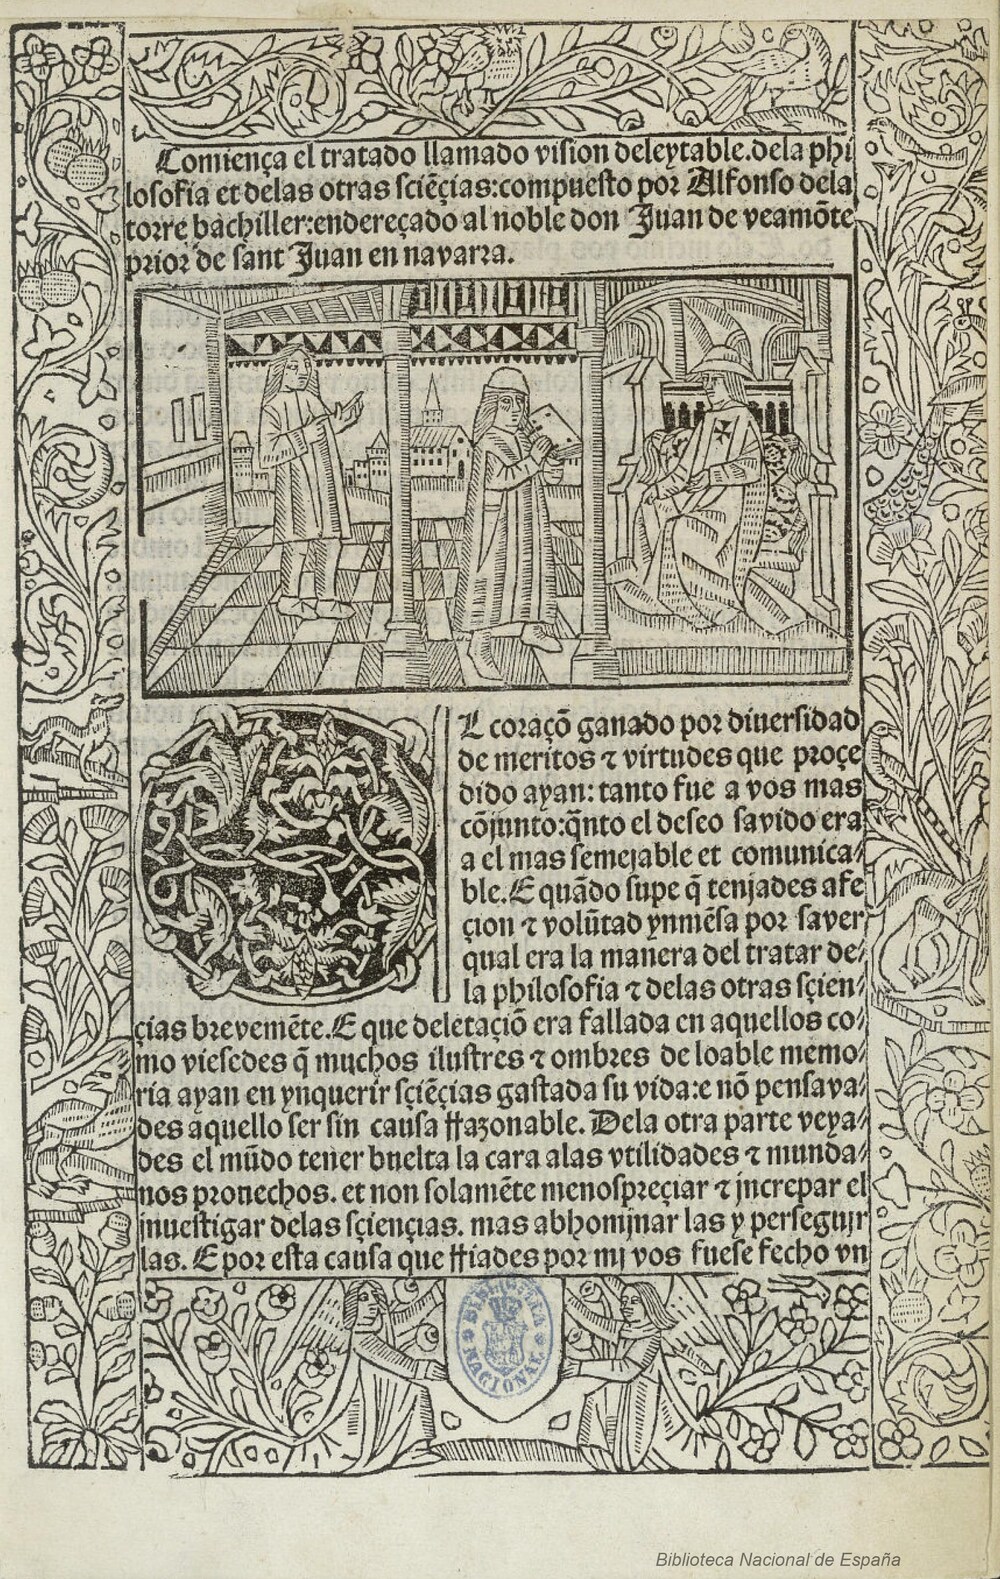 Comiença el tratado llamado vision deleytable.dela phi
losofia et delas otras sciẽçias:compuesto por Alfonso dela
torre bachiller:endereçado al noble don Juan de veamõte
prior de sant Juan en navarra.
L coraçõ ganado por diuersidad
de meritos ⁊ virtudes que proçe
dido ayan: tanto fue a vos mas
cõjunto:q̃nto el deseo savido era
a el mas semejable et comunica⸗
ble.E quãdo supe q̃ tenjades afe
çion ⁊ volũtad ynmẽsa por saver
qual era la manera del tratar de⸗
la philosofia ⁊ delas otras sçien⸗
çias brevemẽte.E que deletaçiõ era fallada en aquellos co⸗
mo viesedes q̃ muchos ilustres ⁊ ombres de loable memo⸗
ria ayan en ynquerir sçiẽçias gastada su vida:e nõ pensava⸗
des aquello ser sin causa rrazonable. Dela otra parte veya⸗
des el mũdo tener buelta la cara alas vtilidades ⁊ munda⸗
nos prouechos. et non solamẽte menospreçiar ⁊ jncrepar el
jnuestigar delas sçiençias. mas abhomjnar las y persegujr
las. E por esta causa que rriades por mj vos fuese fecho vn
BIBLIOTECA NACIONAL
Biblioteca Nacional de España